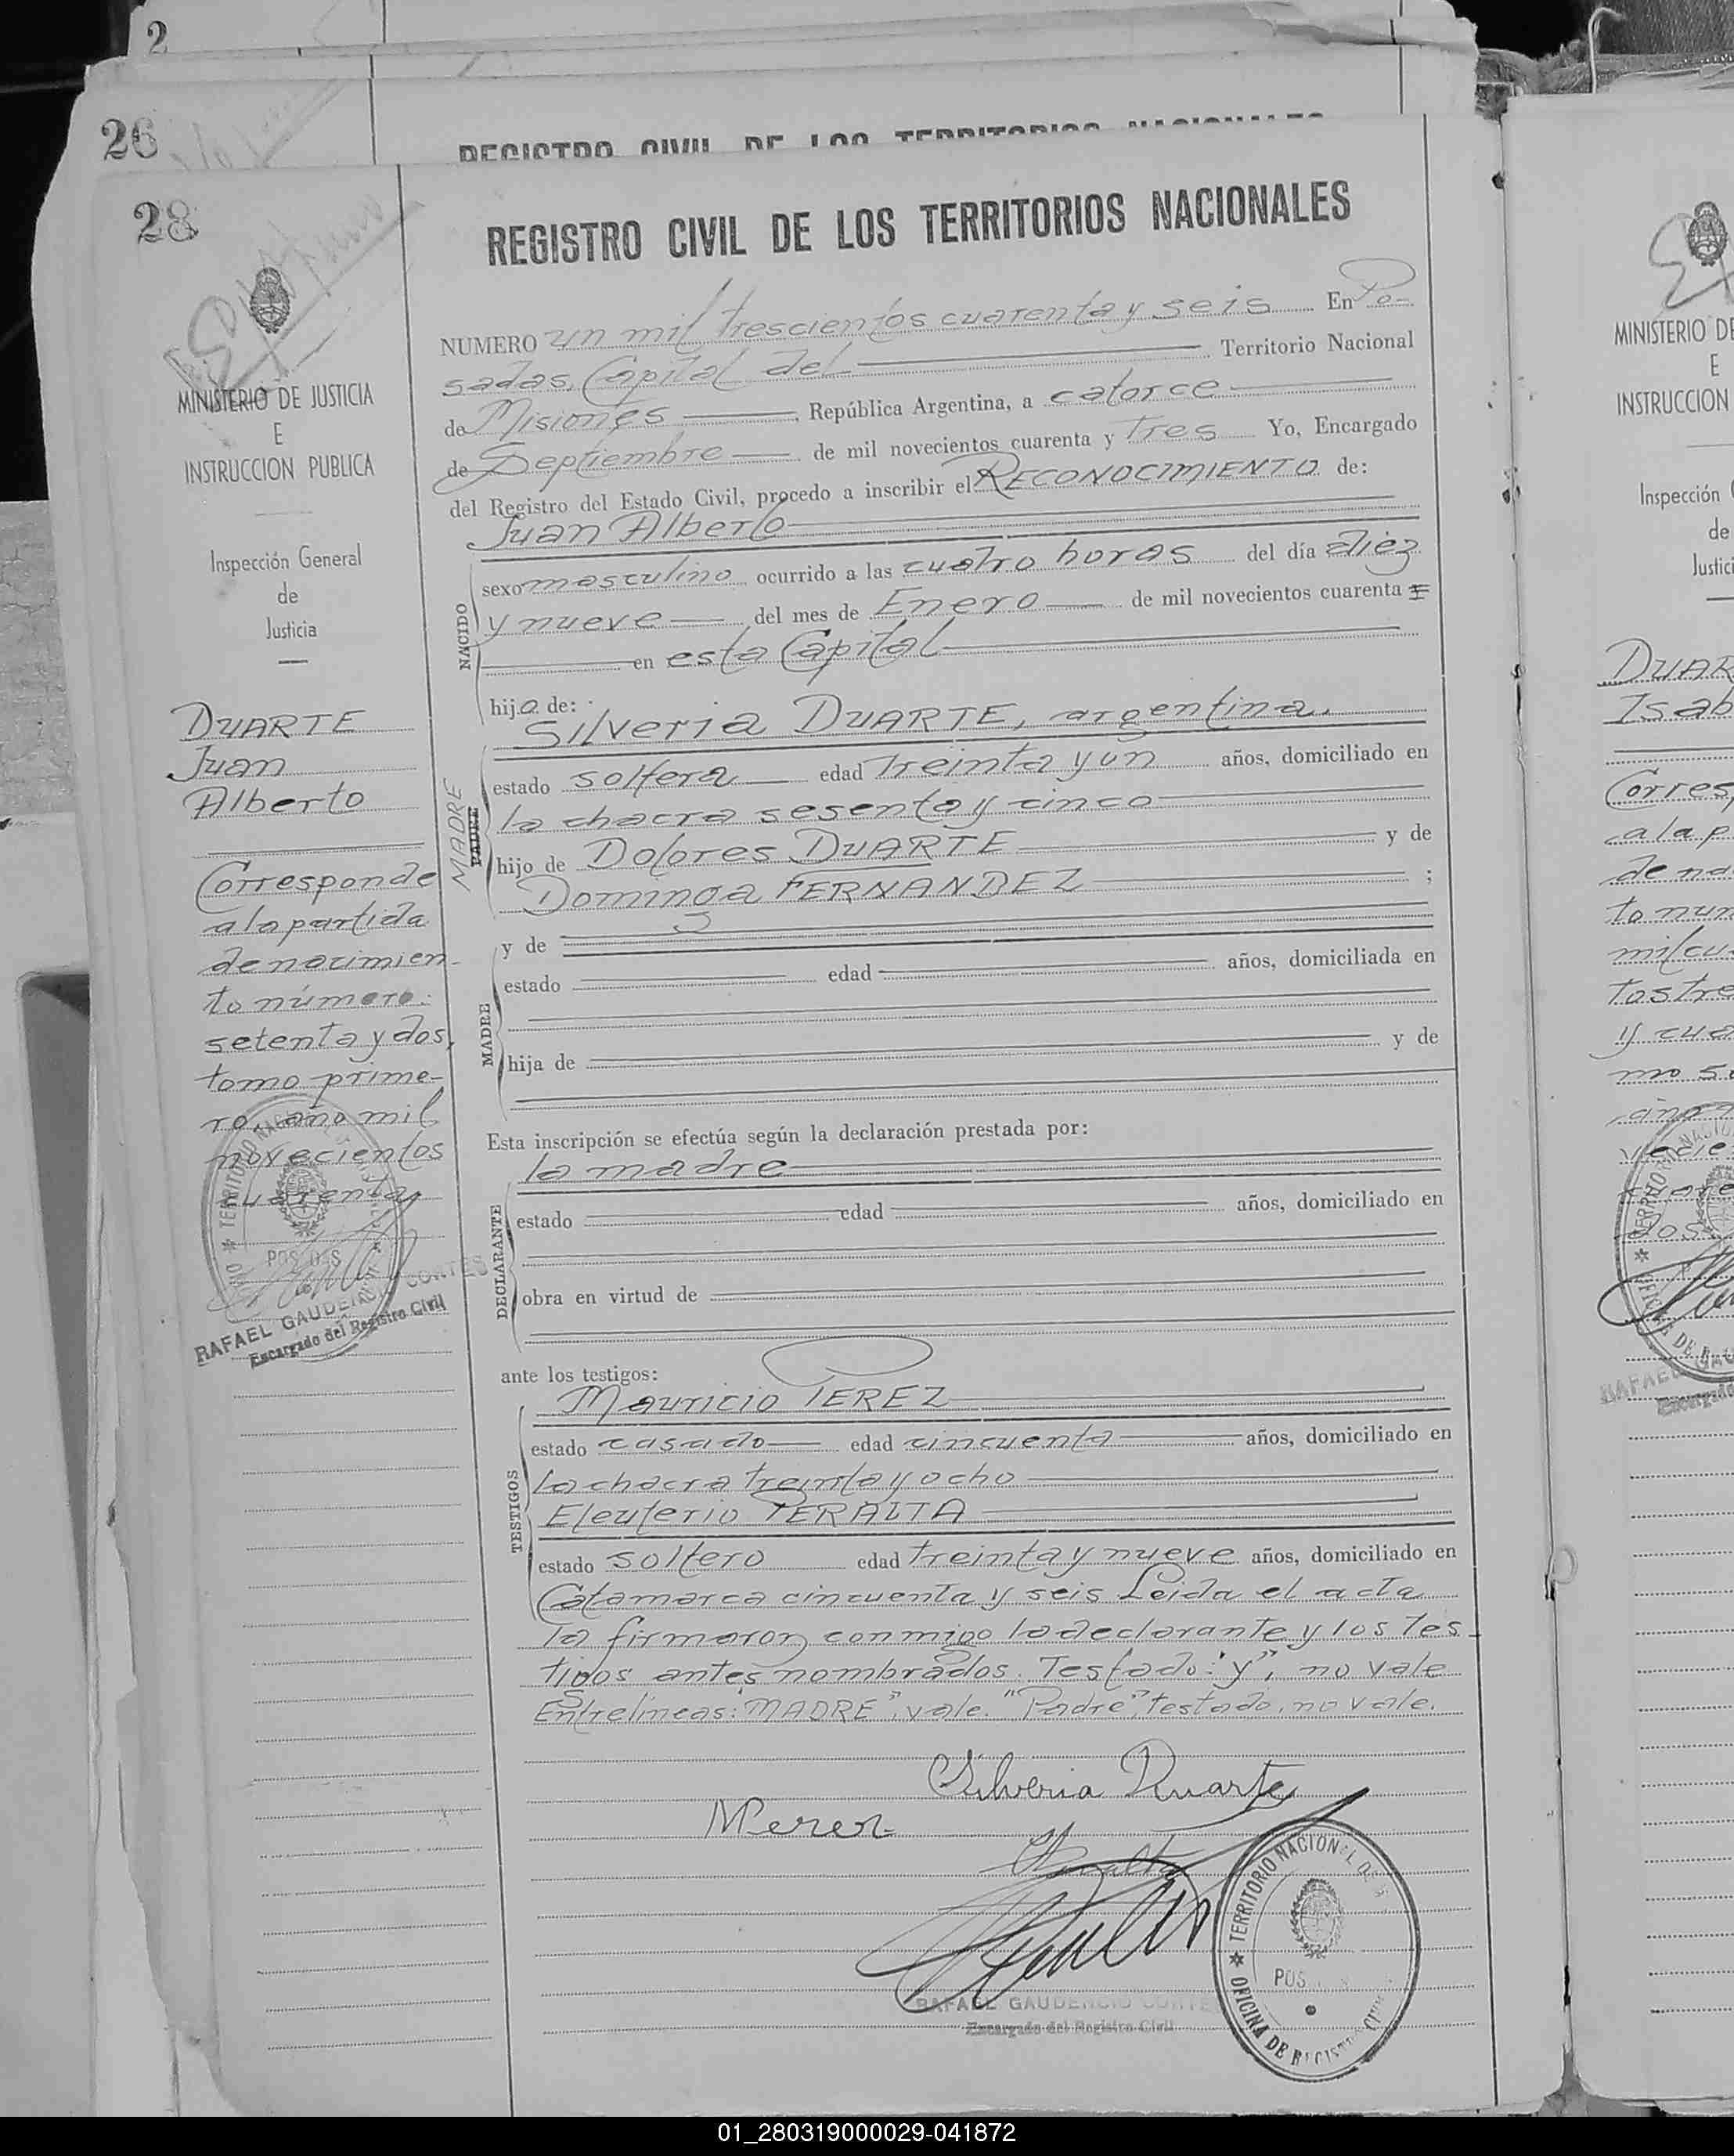 2
26
REGISTRO CIVIL DE LOS TERRITORIOS NACIONALES
28
REGISTRO CIVIL DE LOS TERRITORIOS NACIONALES
MINISTERIO DE JUSTICIA
E
INSTRUCCION PUBLICA
Inspección General
de
Justicia
DUARTE
Juan
Alberto
Corresponde
a la partida
de nacimien-
to número
setenta y dos,
tomo prime-
ro, año mil
novecientos
cuarenta
POSADAS
RAFAEL GAUDENCIO CORTES
Encargado del Registro Civil
NUMERO un mil trescientos cuarenta y seis En Po-
sadas, Capital del Territorio Nacional
de Misiones República Argentina, a catorce
de Septiembre de mil novecientos cuarenta y tres Yo, Encargado
del Registro del Estado Civil, procedo a inscribir el RECONOCIMIENTO de:
Juan Alberto
NACIDO
sexo masculino ocurrido a las cuatro horas del día diez
y nueve del mes de Enero de mil novecientos cuarenta
en esta Capital
hijo de:
Silveria DUARTE, argentina.
MADRE
PADRE
estado soltera edad treinta y un años, domiciliado en
la chacra sesenta y cinco
hijo de Dolores DUARTE y de
Dominga FERNANDEZ ;
y de
MADRE
estado edad años, domiciliada en
hija de y de
Esta inscripción se efectúa según la declaración prestada por:
la madre
DECLARANTE
estado edad años, domiciliado en
obra en virtud de
ante los testigos:
Mauricio PEREZ
TESTIGOS
estado casado edad cincuenta años, domiciliado en
la chacra treinta y ocho
Eleuterio PERALTA
estado soltero edad treinta y nueve años, domiciliado en
Catamarca cincuenta y seis Leida el acta
la firmaron conmigo la declarante y los tes-
tigos antes nombrados. Testado: "y", no vale
Entrelíneas: "MADRE", vale. "Padre", testado, no vale.
Silveria Duarte
MPerez
RAFAEL GAUDENCIO CORTES
Encargado del Registro Civil
TERRITORIO NACIONAL DE
POS
OFICINA DE REGISTRO CIVIL
MINISTERIO DE
E
INSTRUCCION
Inspección
de
Justici
DUAR
Isab
Corres
a la p
de na
to nun
mil cu
tos tre
y cua
mo s
RAFAE
01_280319000029-041872